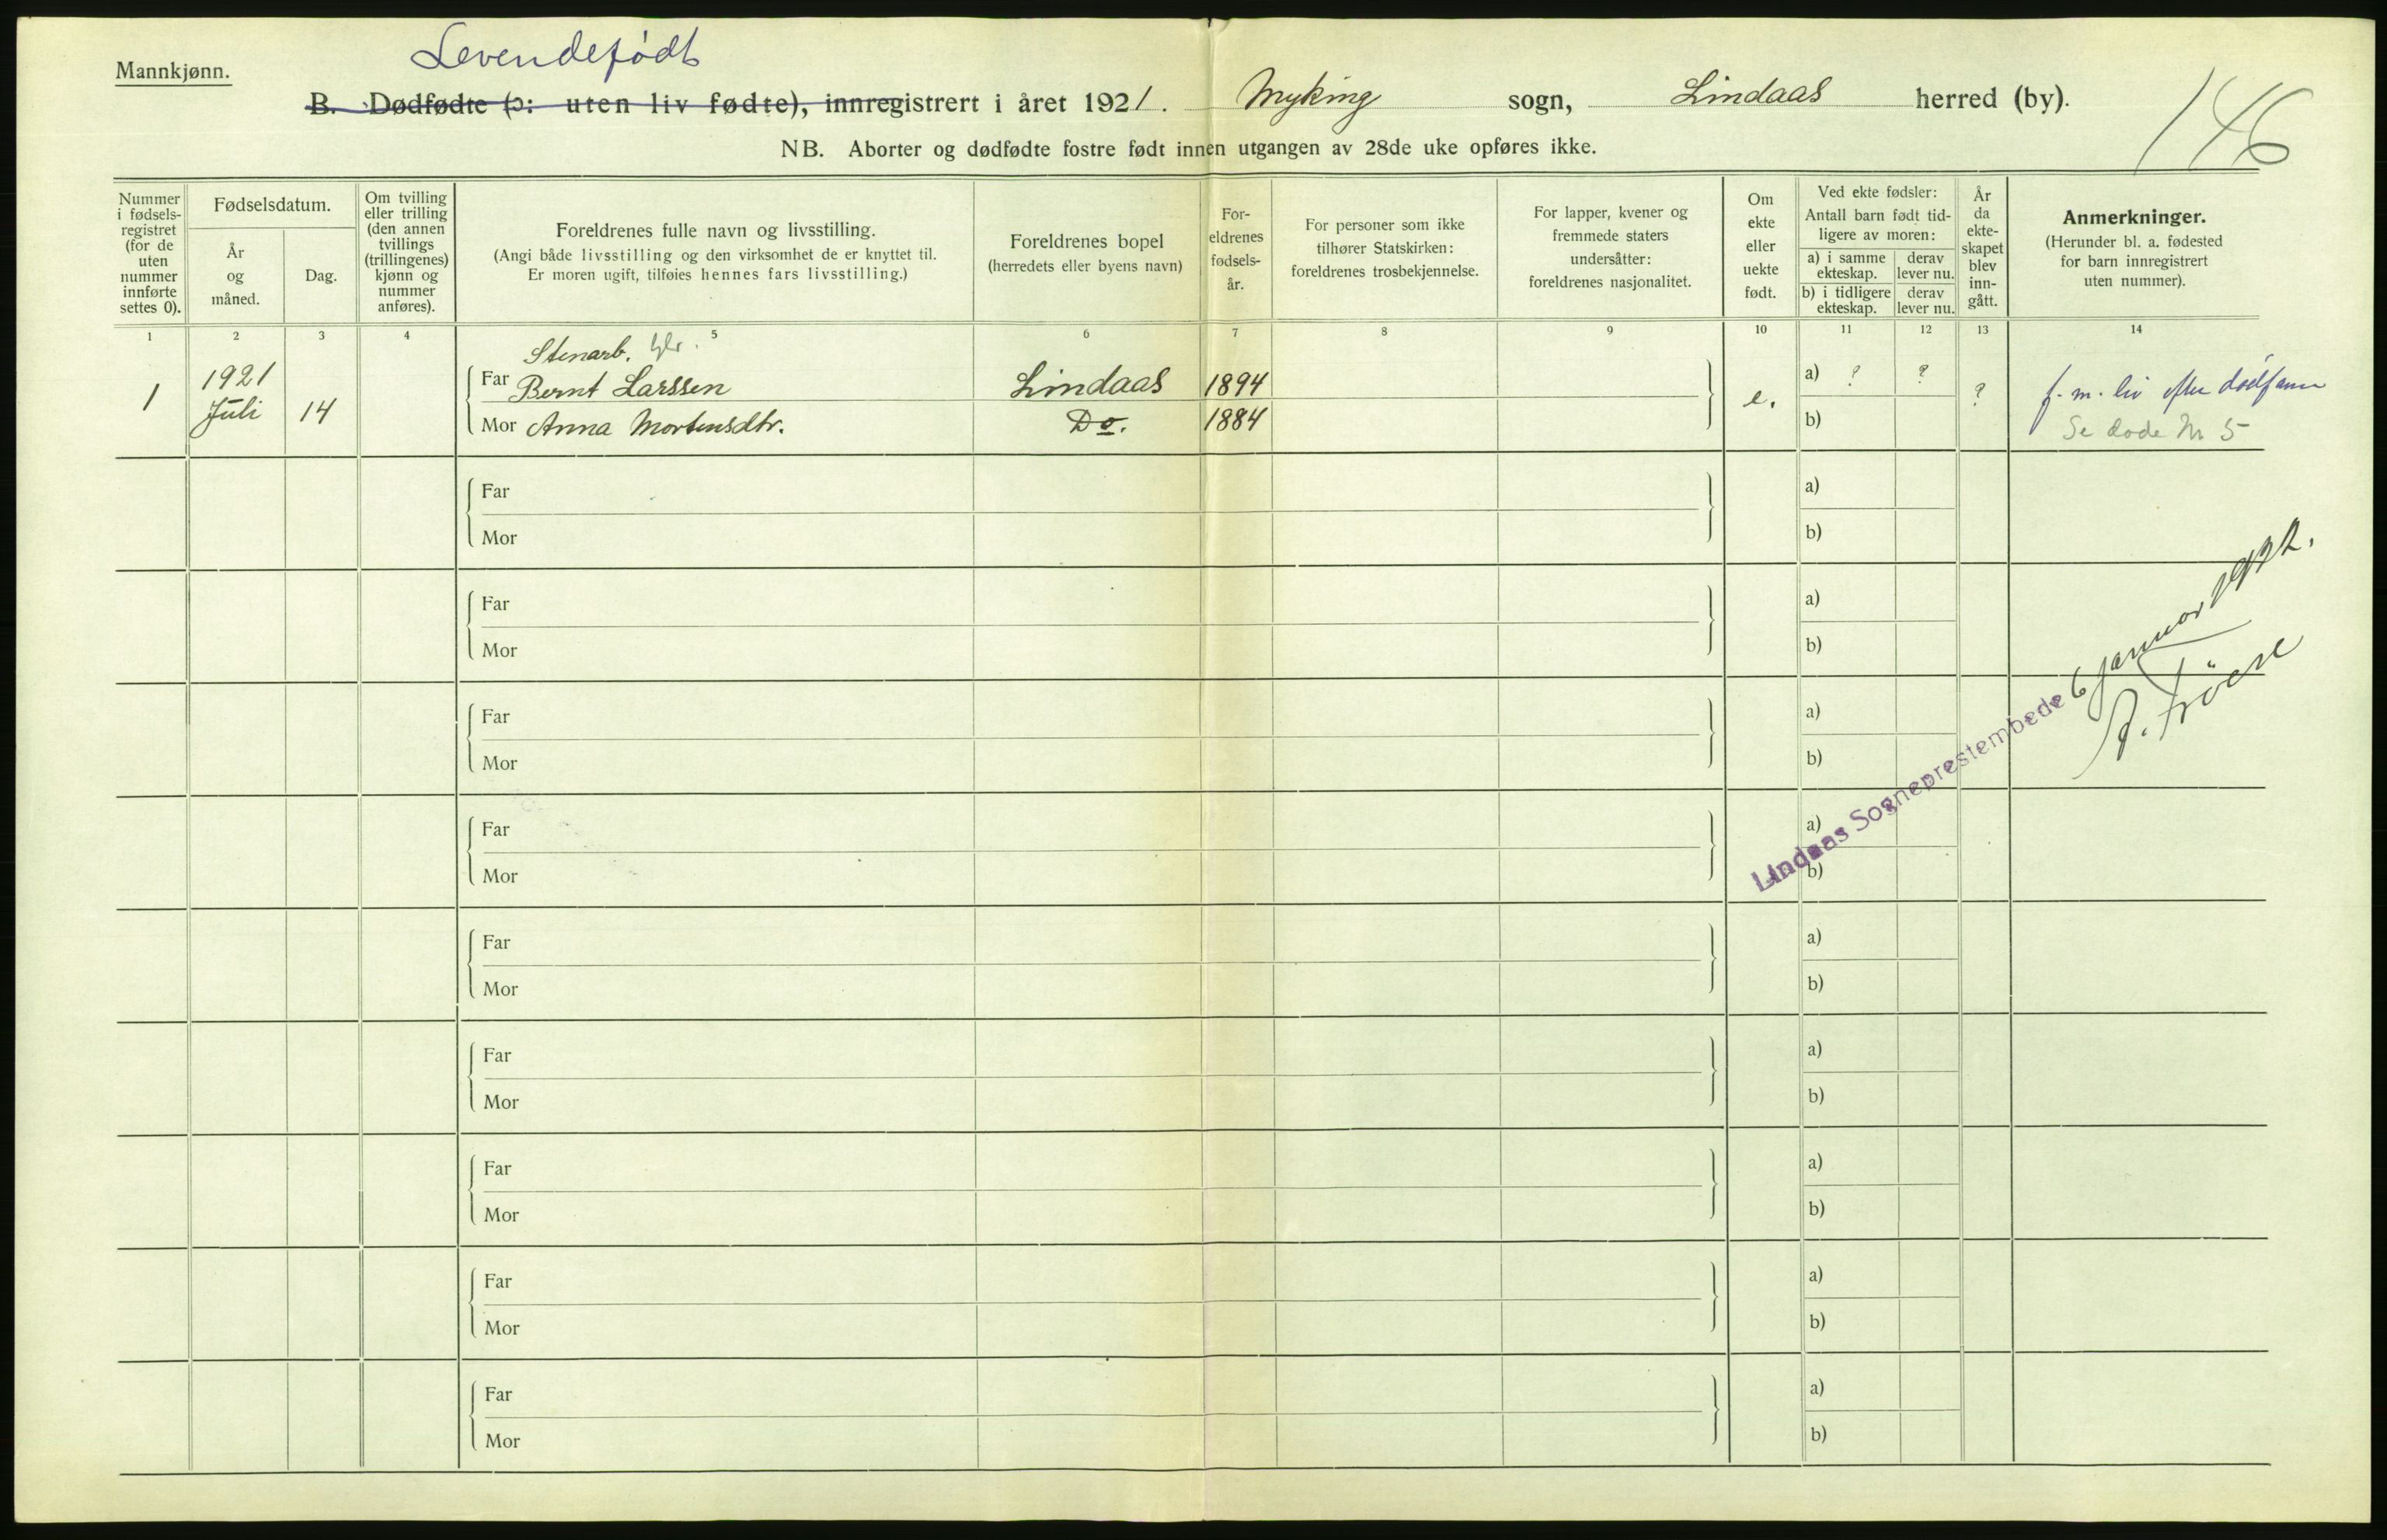 Mannkjønn.
Levendefødt
B. Dødfødte (ɔ: uten liv fødte), innregistrert i året 1921. Myking sogn, Lindaas herred (by).
146
NB. Aborter og dødfødte fostre født innen utgangen av 28de uke opføres ikke.
Nummer i fødsels-registret (for de uten nummer innførte settes 0).
Fødselsdatum.
År og måned.
Dag.
Om tvilling eller trilling (den annen tvillings (trillingenes) kjønn og nummer anføres).
Foreldrenes fulle navn og livsstilling.
(Angi både livsstilling og den virksomhet de er knyttet til.
Er moren ugift, tilføies hennes fars livsstilling.)
Foreldrenes bopel
(herredets eller byens navn)
For-eldrenes fødsels-år.
For personer som ikke tilhører Statskirken: foreldrenes trosbekjennelse.
For lapper, kvener og fremmede staters undersåtter: foreldrenes nasjonalitet.
Om ekte eller uekte født.
Ved ekte fødsler:
Antall barn født tid-ligere av moren:
a) i samme ekteskap.
derav lever nu.
b) i tidligere ekteskap.
derav lever nu.
År da ekte-skapet blev inn-gått.
Anmerkninger.
(Herunder bl. a. fødested for barn innregistrert uten nummer).
1 2 3 4 5 6 7 8 9 10 11 12 13 14
Stenarb.
1 1921 Juli 14
Far Bernt Larssen Lindaas 1894
Mor Anna Mortensdtr. Do. 1884
e. a) ? ? ?
b)
f. m. liv efter
Se døde Nr 5
Far a)
Mor b)
Far a)
Mor b)
Far a)
Mor b)
Far a)
Mor b)
Far a)
Mor b)
Far a)
Mor b)
Far a)
Mor b)
Far a)
Mor b)
Far a)
Mor b)
Lindaas Sogneprestembede 6 januar 1922.